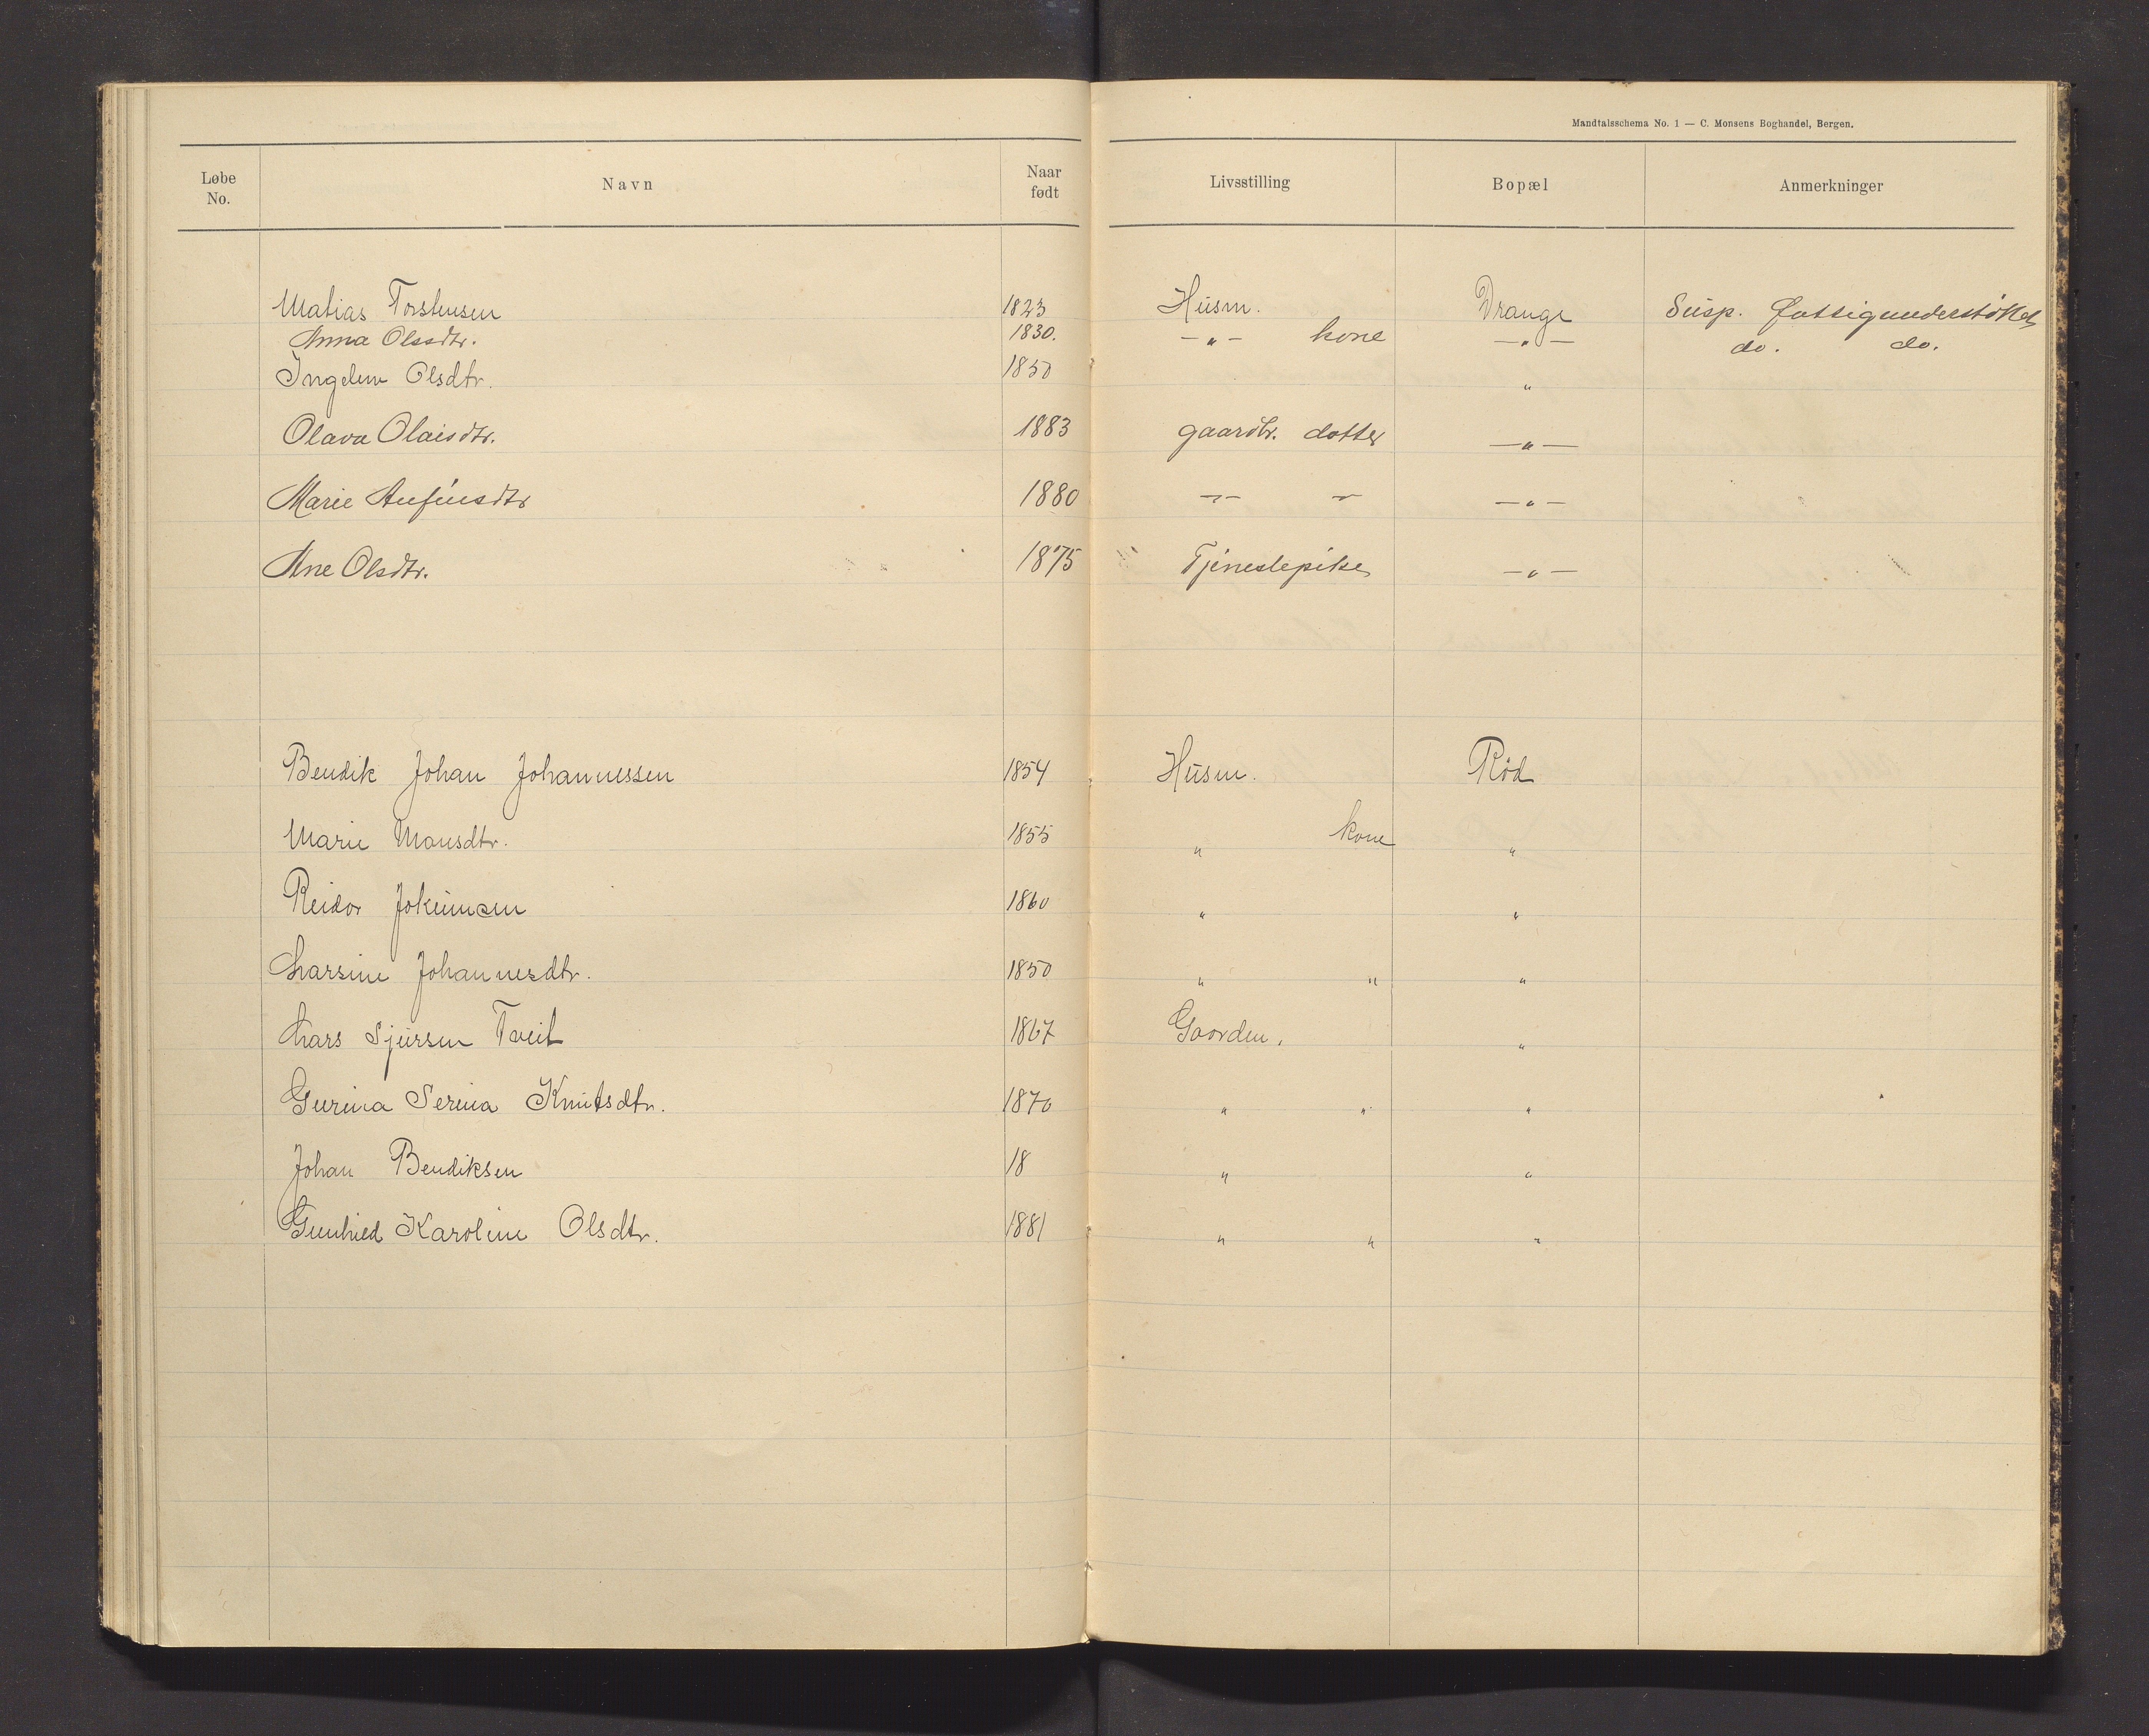 Mandtalsschema No. 1 — C. Monsens Boghandel, Bergen.
Løbe No. Navn Naar født Livsstilling Bopæl Anmerkninger
Matias Torstensen 1823 Husm. Drange Susp. fattigunderstøttet
Anna Olsdtr. 1830. -„- kone -„- do. do.
Olsdtr. 1850 „
Olava Olaisdtr. 1883 gaardbr. datter -„-
Marie Anfinsdtr 1880 -„- „ -„-
Ane Olsdtr. 1875 Tjenestepike -„-
Bendik Johan Johannessen 1854 Husm. Röd
Marie Monsdtr. 1855 „ kone „
Reidar Jokumsen 1860 „ „
Larsine Johannesdtr. 1850 „ „ „
Lars Sjursen Tveit 1867 Gaarden. „
Gurina Serina Knutsdtr. 1870 „ „ „
Johan Bendiksen 18 „ „
Karoline Olsdtr. 1881 „ „ „